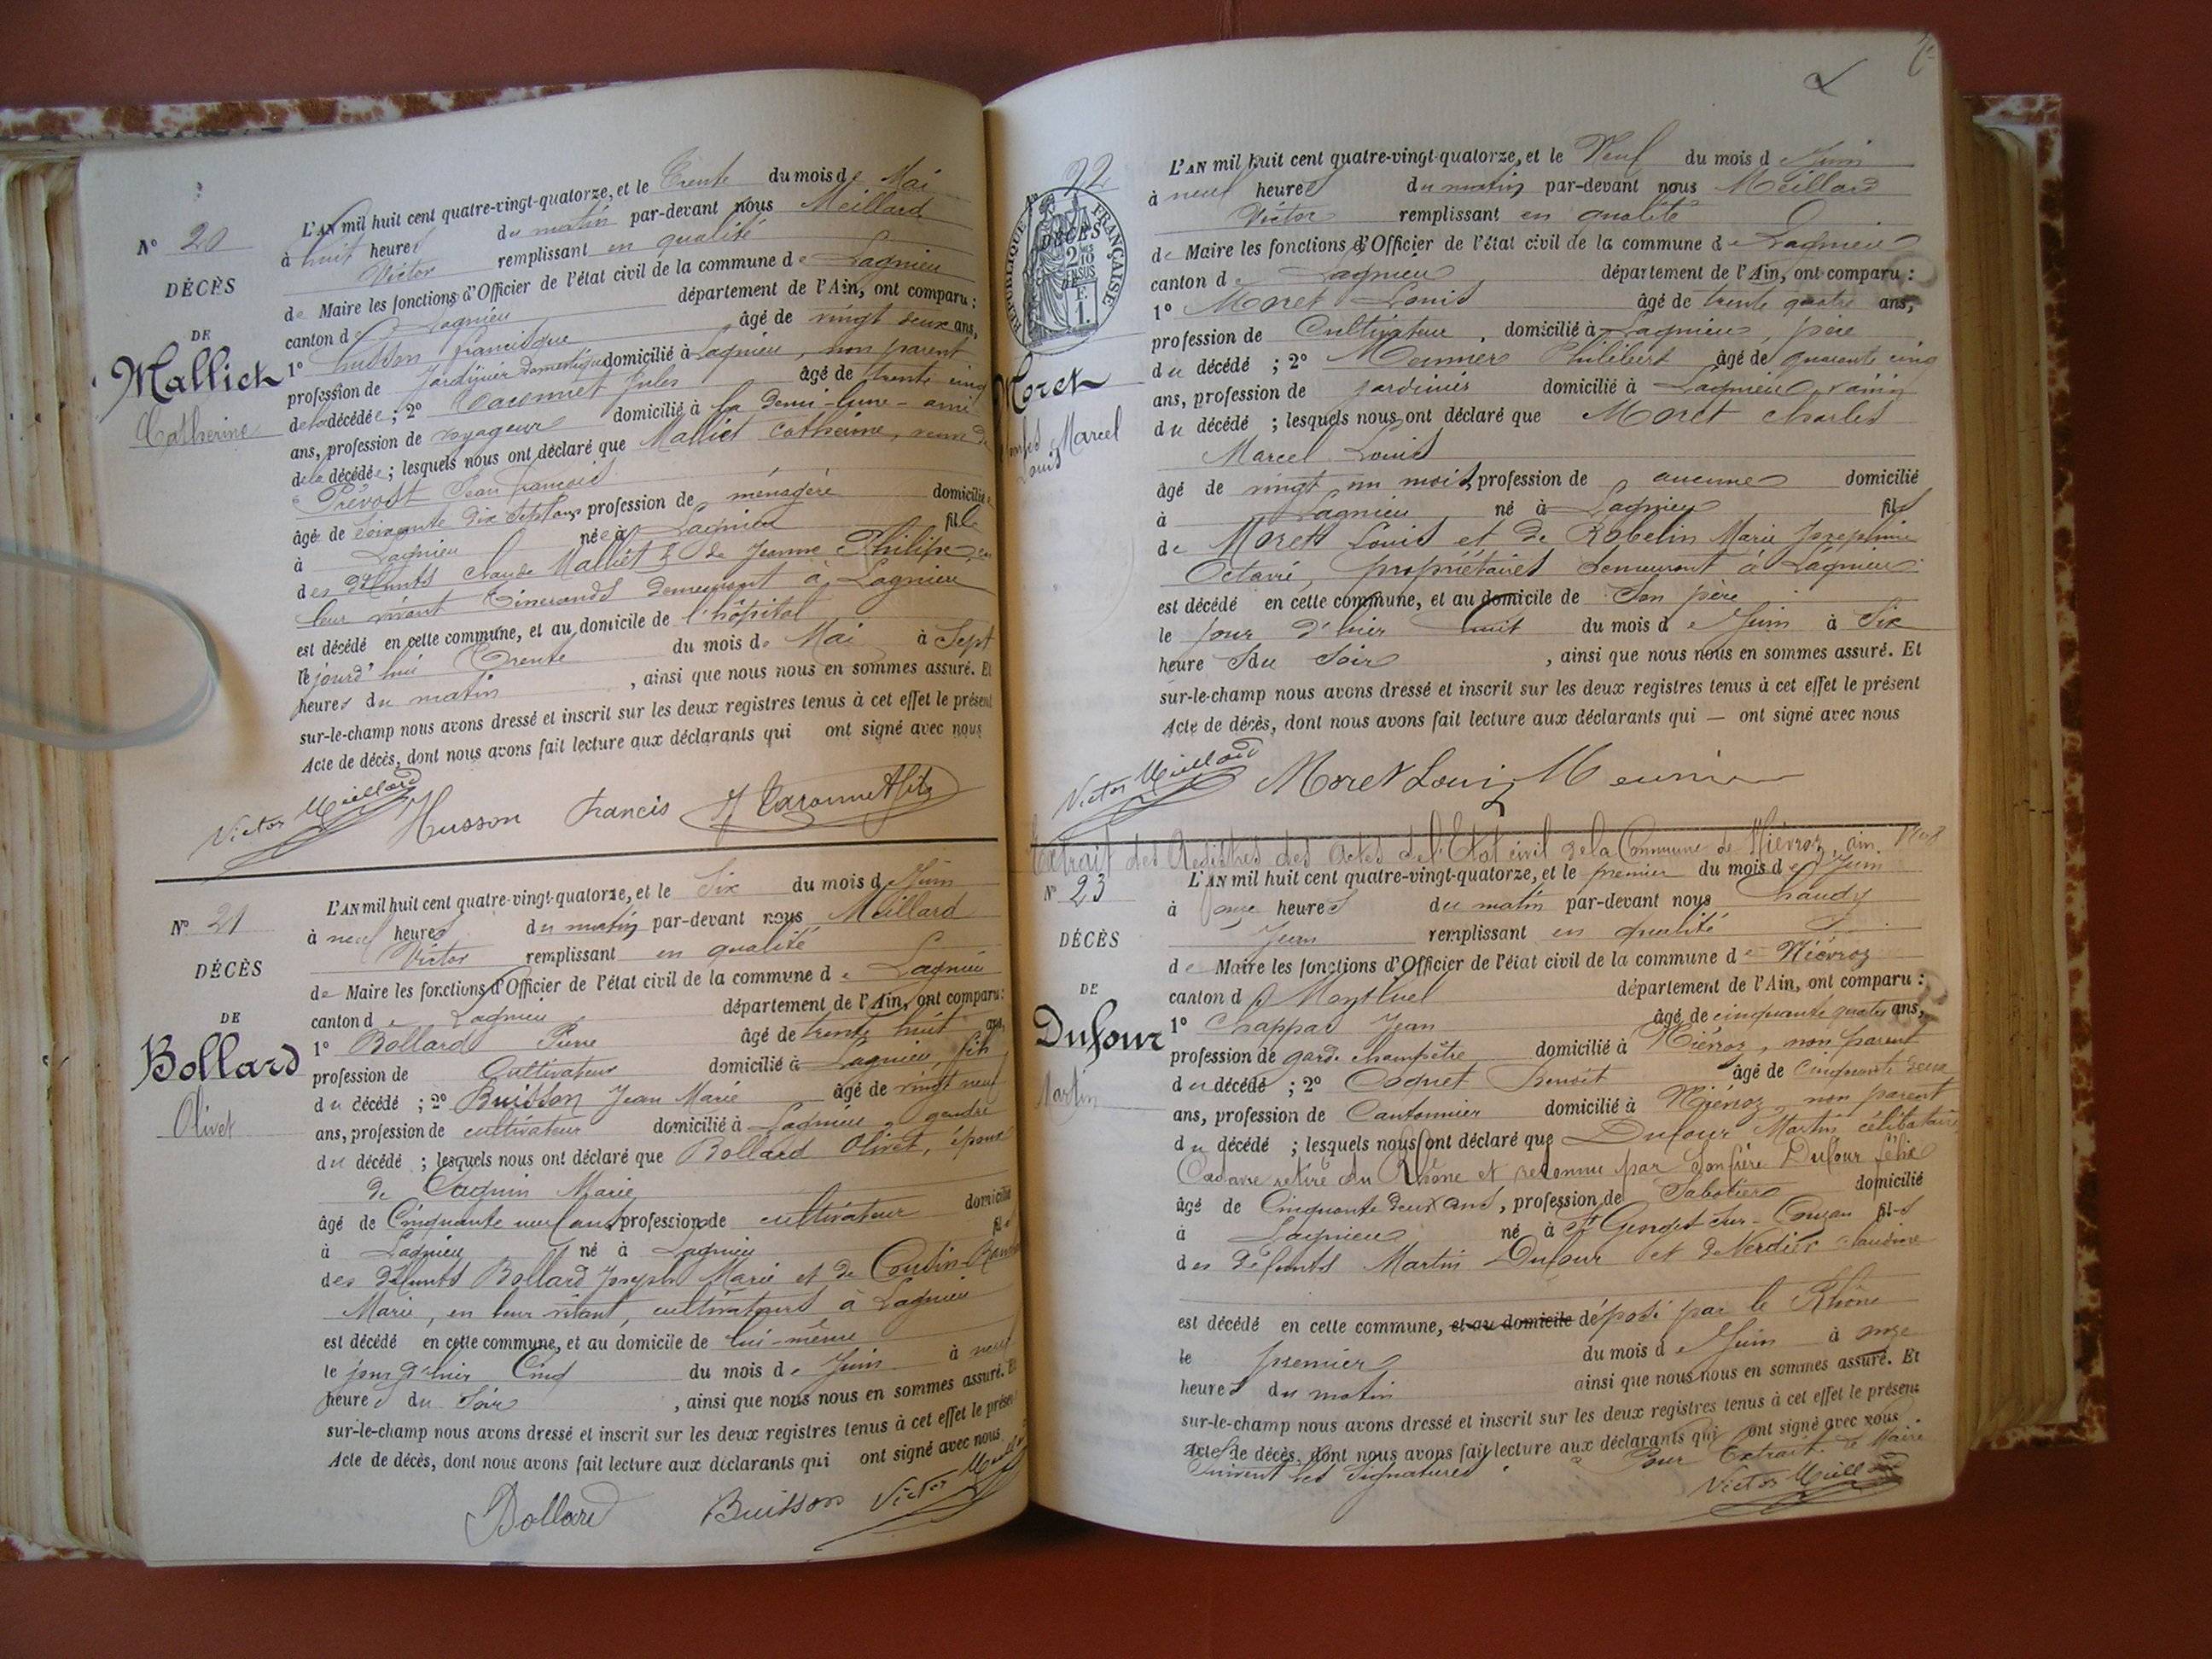 N° 20
DÉCÈS
DE
Malliet
Catherine
L'AN mil huit cent quatre-vingt-quatorze, et le Trente du mois de Mai
à huit heures du matin par-devant nous Meillard
Victor remplissant en qualité
de Maire les fonctions d'Officier de l'état civil de la commune de Lagnieu
canton de Lagnieu département de l'Ain, ont comparu :
1° husson francisque âgé de vingt deux ans,
profession de Jardinier Domestique domicilié à Lagnieu, non parent
de la décédée ; 2° Taconnet Jules âgé de trente cinq
ans, profession de voyageur domicilié à la demi-lune - ami
de la décédée ; lesquels nous ont déclaré que Malliet Catherine, veuve de
Prévost Jean françois
âgée de soixante dix sept ans profession de ménagère domiciliée
à Lagnieu née à Lagnieu fille
des défunts Claude Malliet & de Jeanne Philipe en
leur vivant Tisserands demeurant à Lagnieu
est décédé en cette commune, et au domicile de l'hôpital
le jourd'hui Trente du mois de Mai à Sept
heures du matin , ainsi que nous nous en sommes assuré. Et
sur-le-champ nous avons dressé et inscrit sur les deux registres tenus à cet effet le présent
Acte de décès, dont nous avons fait lecture aux déclarants qui ont signé avec nous
Victor Meillard Husson Francis J Taconnet fils
N° 21
DÉCÈS
DE
Bollard
Olivet
L'AN mil huit cent quatre-vingt-quatorze, et le Six du mois de Juin
à neuf heures du matin par-devant nous Meillard
Victor remplissant en qualité
de Maire les fonctions d'Officier de l'état civil de la commune de Lagnieu
canton de Lagnieu département de l'Ain, ont comparu :
1° Bollard Pierre âgé de trente huit ans,
profession de Cultivateur domicilié à Lagnieu, fils
du décédé ; 2° Buisson Jean Marie âgé de vingt neuf
ans, profession de cultivateur domicilié à Lagnieu, gendre
du décédé ; lesquels nous ont déclaré que Bollard Olivet, époux
de Marie
âgé de Cinquante neuf ans profession de cultivateur domicilié
à Lagnieu né à Lagnieu fils
des défunts Bollard Joseph Marie et de Cousin
Marie, en leur vivant, cultivateurs à Lagnieu
est décédé en cette commune, et au domicile de lui-même
le jour d'hier Cinq du mois de Juin à neuf
heures du Soir , ainsi que nous nous en sommes assuré. Et
sur-le-champ nous avons dressé et inscrit sur les deux registres tenus à cet effet le présent
Acte de décès, dont nous avons fait lecture aux déclarants qui ont signé avec nous
Bollard Buisson Victor Meillard
22
RÉPUBLIQUE FRANÇAISE
DÉCÈS
2/10 EN SUS
F. 1.
Moret
Charles Marcel
Louis
L'AN mil huit cent quatre-vingt-quatorze, et le Neuf du mois de Juin
à neuf heures du matin par-devant nous Meillard
Victor remplissant en qualité
de Maire les fonctions d'Officier de l'état civil de la commune de Lagnieu
canton de Lagnieu département de l'Ain, ont comparu :
1° Moret Louis âgé de trente quatre ans,
profession de Cultivateur , domicilié à Lagnieu, père
du décédé ; 2° Meunier Philibert âgé de quarante cinq
ans, profession de jardinier domicilié à Lagnieu, voisin
du décédé ; lesquels nous ont déclaré que Moret Charles
Marcel Louis
âgé de vingt un mois profession de aucune domicilié
à Lagnieu né à Lagnieu fils
de Moret Louis et de Robelin Marie Josephine
Octavie, propriétaires demeurant à Lagnieu
est décédé en cette commune, et au domicile de Son père
le jour d'hier huit du mois de Juin à Six
heures du Soir , ainsi que nous nous en sommes assuré. Et
sur-le-champ nous avons dressé et inscrit sur les deux registres tenus à cet effet le présent
Acte de décès, dont nous avons fait lecture aux déclarants qui — ont signé avec nous
Victor Meillard Moret Louis Meunier
Extrait des Registres des actes de l'Etat civil de la Commune de Niévroz, ain.
N° 23
DÉCÈS
DE
Dufour
Martin
L'AN mil huit cent quatre-vingt-quatorze, et le premier du mois de Juin
à onze heures du matin par-devant nous Chaudy
Jean remplissant en qualité
de Maire les fonctions d'Officier de l'état civil de la commune de Niévroz
canton de Montluel département de l'Ain, ont comparu :
1° Chappas Jean âgé de cinquante quatre ans,
profession de garde champêtre domicilié à Niévroz, non parent
du décédé ; 2° Coquet Benoît âgé de Cinquante deux
ans, profession de Cantonnier domicilié à Niévroz, non parent
du décédé ; lesquels nous ont déclaré que Dufour Martin célibataire
Cadavre retiré du Rhône et reconnu par Son frère Dufour félix
âgé de Cinquante deux ans, profession de Sabotier domicilié
à Lagnieu né à St Georges Sur-Couzan fils
des défunts Martin Dufour et de Verdier Claudine
est décédé en cette commune, et au domicile déposé par le Rhône
le premier du mois de Juin à onze
heures du matin ainsi que nous nous en sommes assuré. Et
sur-le-champ nous avons dressé et inscrit sur les deux registres tenus à cet effet le présent
Acte de décès, dont nous avons fait lecture aux déclarants qui ont signé avec nous
Suivent les Signatures. Pour Extrait. Le Maire
Victor Meillard